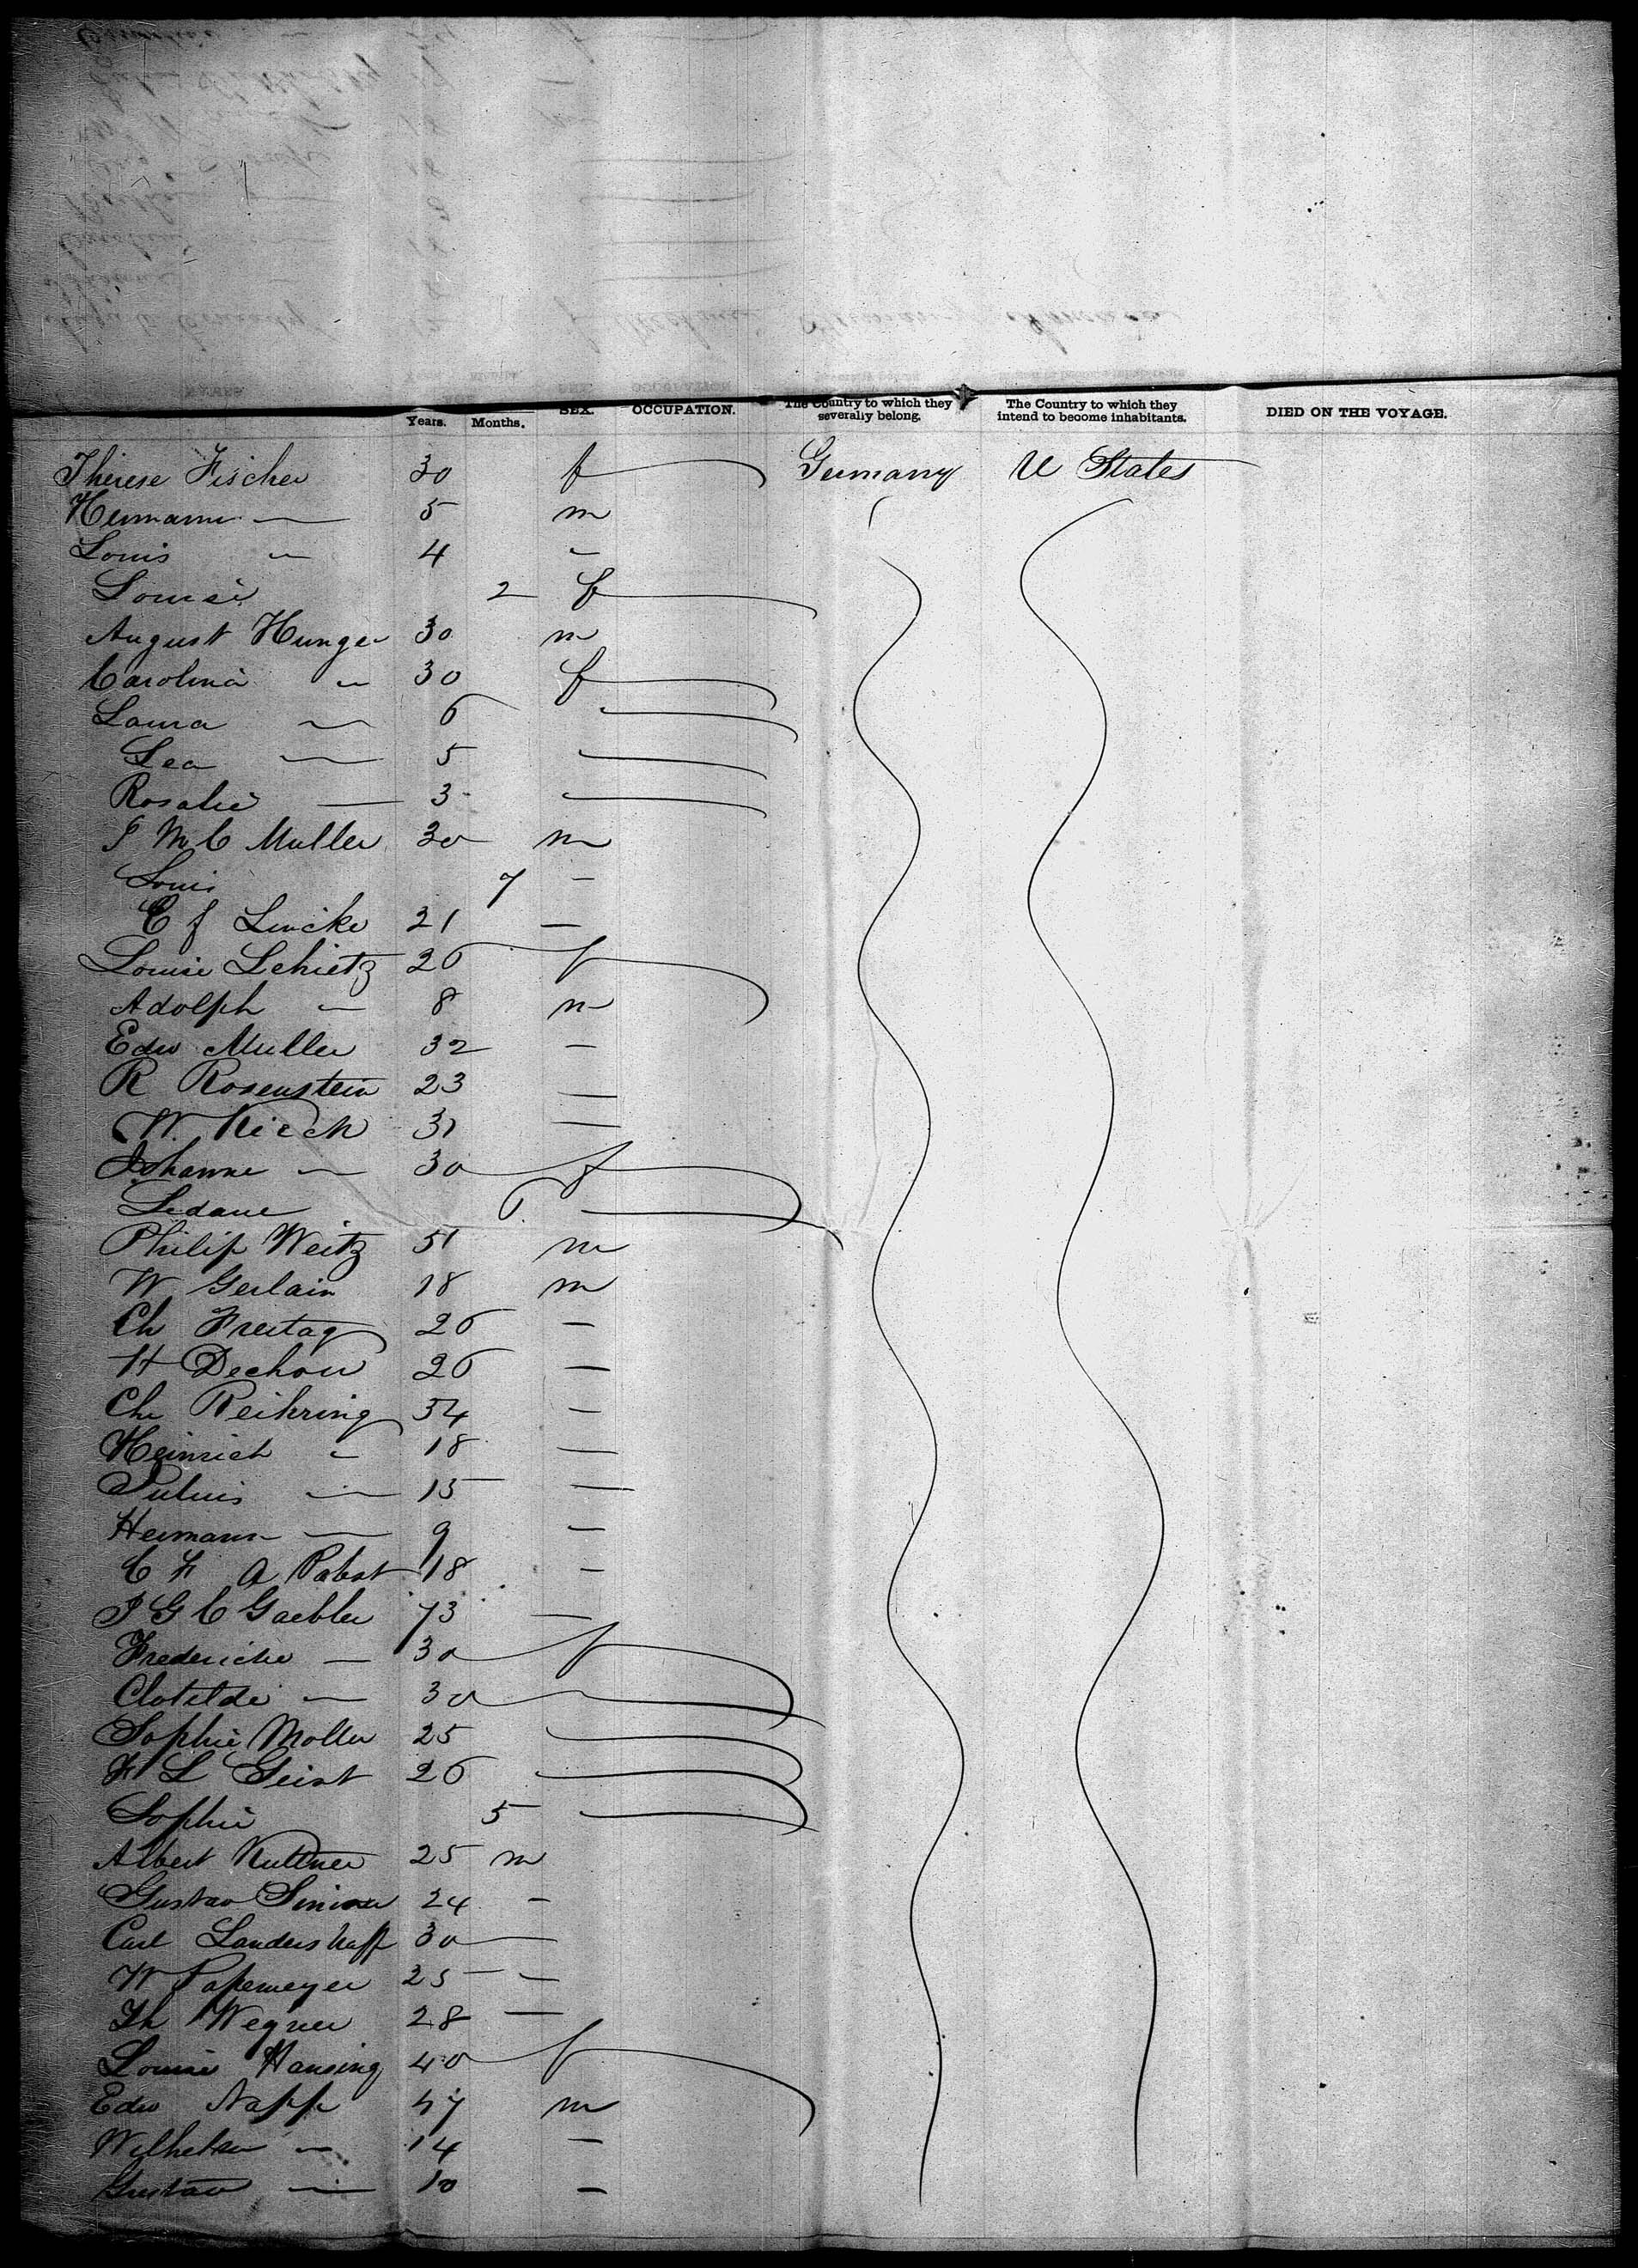 Years. Months. SEX. OCCUPATION. The Country to which they severally belong. The Country to which they intend to become inhabitants. DIED ON THE VOYAGE.
Therese Fischer 30 f Germany U States
Hermann — 5 m
Louis — 4 —
Louise 2 f
August Hunger 30 m
Carolina — 30 f
Laura — 6
Lea — 5
Rosalie — 3
J M C Muller 30 m
Louis 7 —
E F Lincke 21 —
Louise Schietz 26 f
Adolph — 8 m
Edw Muller 32 —
R Rosenstein 23 —
W. Kirch 31 —
Johanne — 30 f
6
Philip Weitz 51 m
W Gerlain 18 m
Ch Freitag 26 —
H Dechow 26 —
Ch Reihring 54 —
Heinrich — 18 —
Julius — 15 —
Hermann — 9 —
C F A Pabst 18 —
J G C Gaebler 73 —
Fredericke — 30 f
Clotilde — 30
Sophie Moller 25
F L Geist 26
Sophie 5
Albert Kuttner 25 m
Gustav 24 —
Carl Landershaff 30 —
W Papemeyer 25 —
Th Wegner 28 —
Louise Hansing 40 f
Edw Napp 47 m
Wilhelm — 14 —
Gustav — 10 —